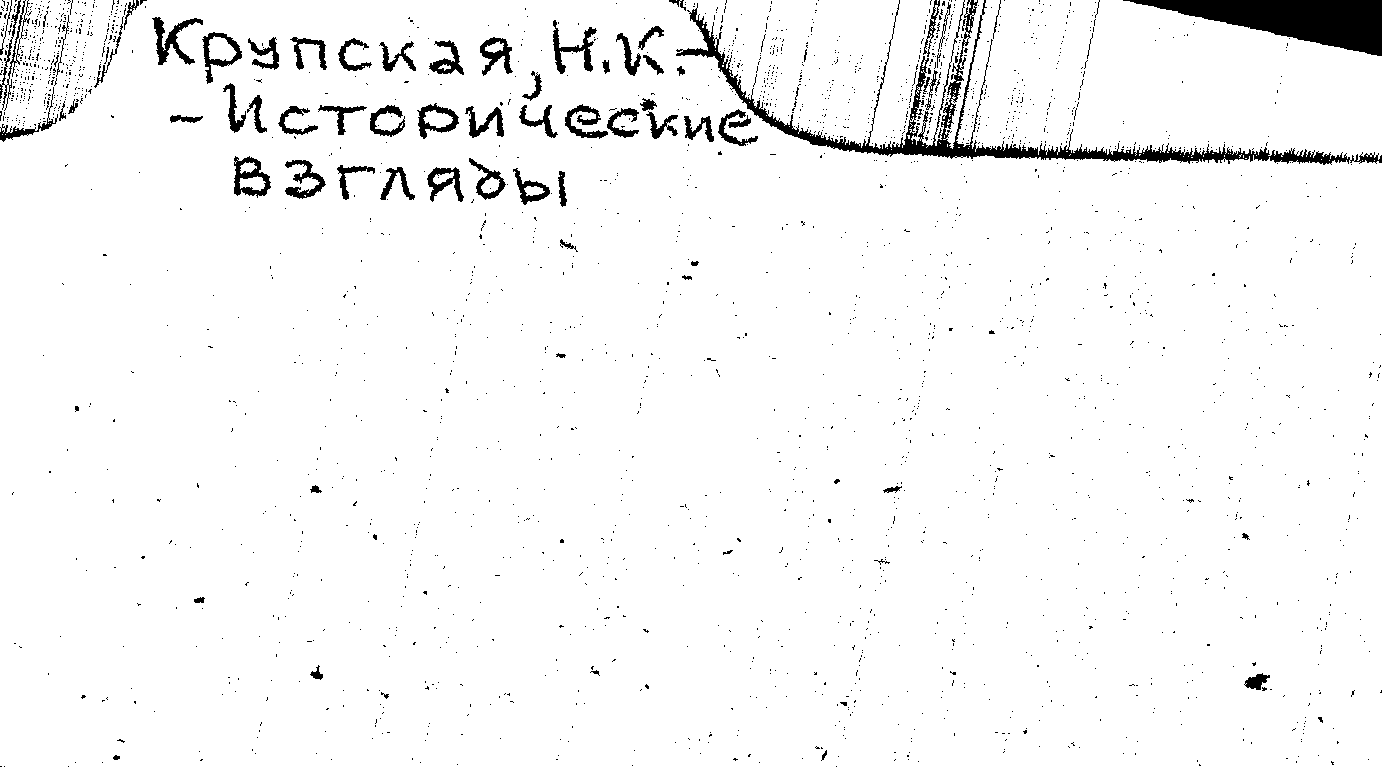 Крупская, Н.К.–
– Исторические
взгляды